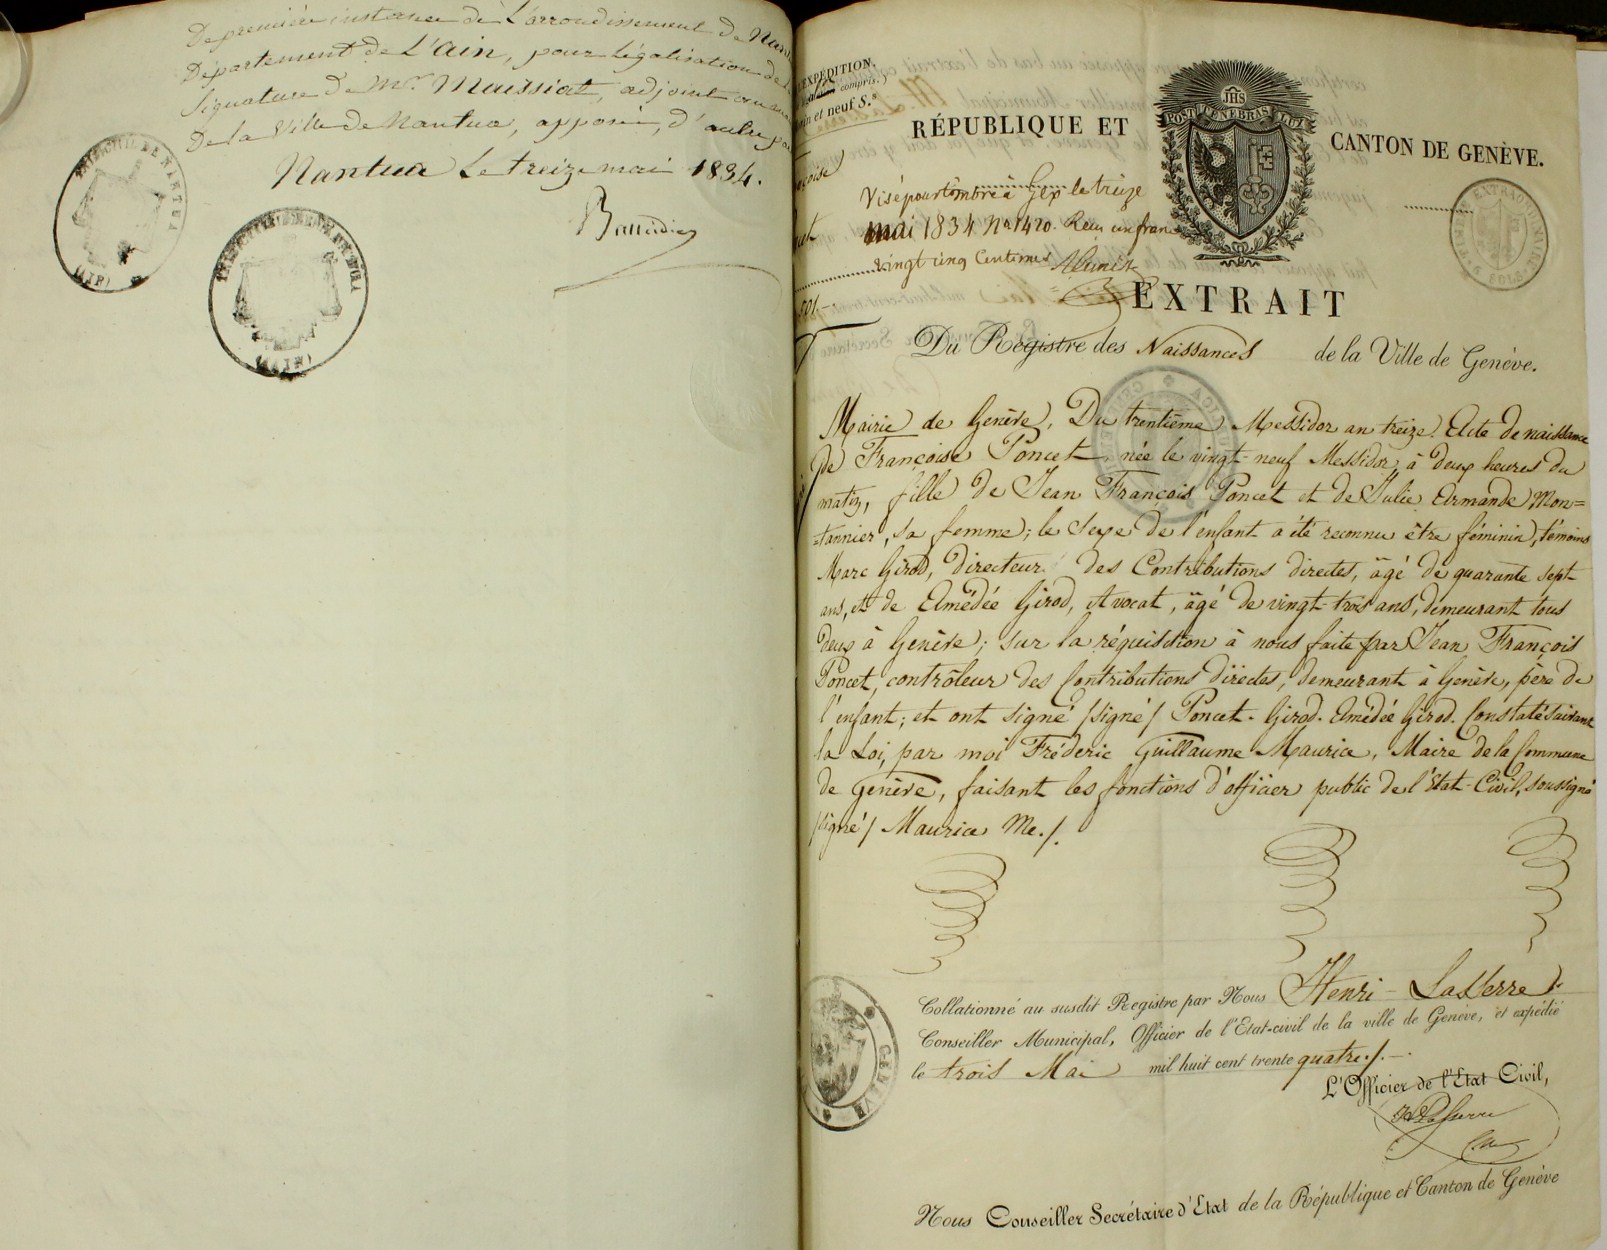 De première instance de L'arrondissement de Nan
Département de L'Ain, pour légalisation de la
Signature de Mr. Maissiat, adjoint au
De la Ville de Nantua, apposée, d'autre pa
Nantua Le treize mai 1834.
NANTUA
(AIN)
(AIN)
EXPÉDITION.
compris.)
et neuf S.s
RÉPUBLIQUE ET
JHS
POST TENEBRAS LUX
CANTON DE GENÈVE.
TIMBRE EXTRAORDINAIRE
9 SOUS
Visé pour timbre à Gex le treize
mai 1834 No 1420. Reçu un franc
vingt cinq Centimes
EXTRAIT
Du Registre des Naissances de la Ville de Genève.
Mairie de Genève, Du trentième Messidor an treize. Acte de naissance
de Françoise Poncet, née le vingt-neuf Messidor à deux heures du
matin, fille de Jean François Poncet et de Julie Armande Mon=
=tannier, sa femme; le sexe de l'enfant a été reconnu être féminin, témoins
Marc Girod, directeur des Contributions directes, âgé de quarante sept
ans, et de Amédée Girod, Avocat, âgé de vingt-trois ans, demeurant tous
deux à Genève; sur la réquisition à nous faite par Jean François
Poncet, contrôleur des Contributions directes, demeurant à Genève, père de
l'enfant; et ont signé /signé/ Poncet. Girod. Amédée Girod. Constaté suivant
la Loi, par moi Fréderic Guillaume Maurice, Maire de la Commune
de Genève, faisant les fonctions d'officier public de l'Etat-Civil, soussigné
/signé/ Maurice Me./.
Collationné au susdit Registre par Nous Henri-LaSerre
Conseiller Municipal, Officier de l'Etat-civil de la ville de Genève, et expédié
le trois Mai mil huit cent trente quatre./.
GENÈVE
L'Officier de l'Etat Civil,
Nous Conseiller Secrétaire d'Etat de la République et Canton de Genève